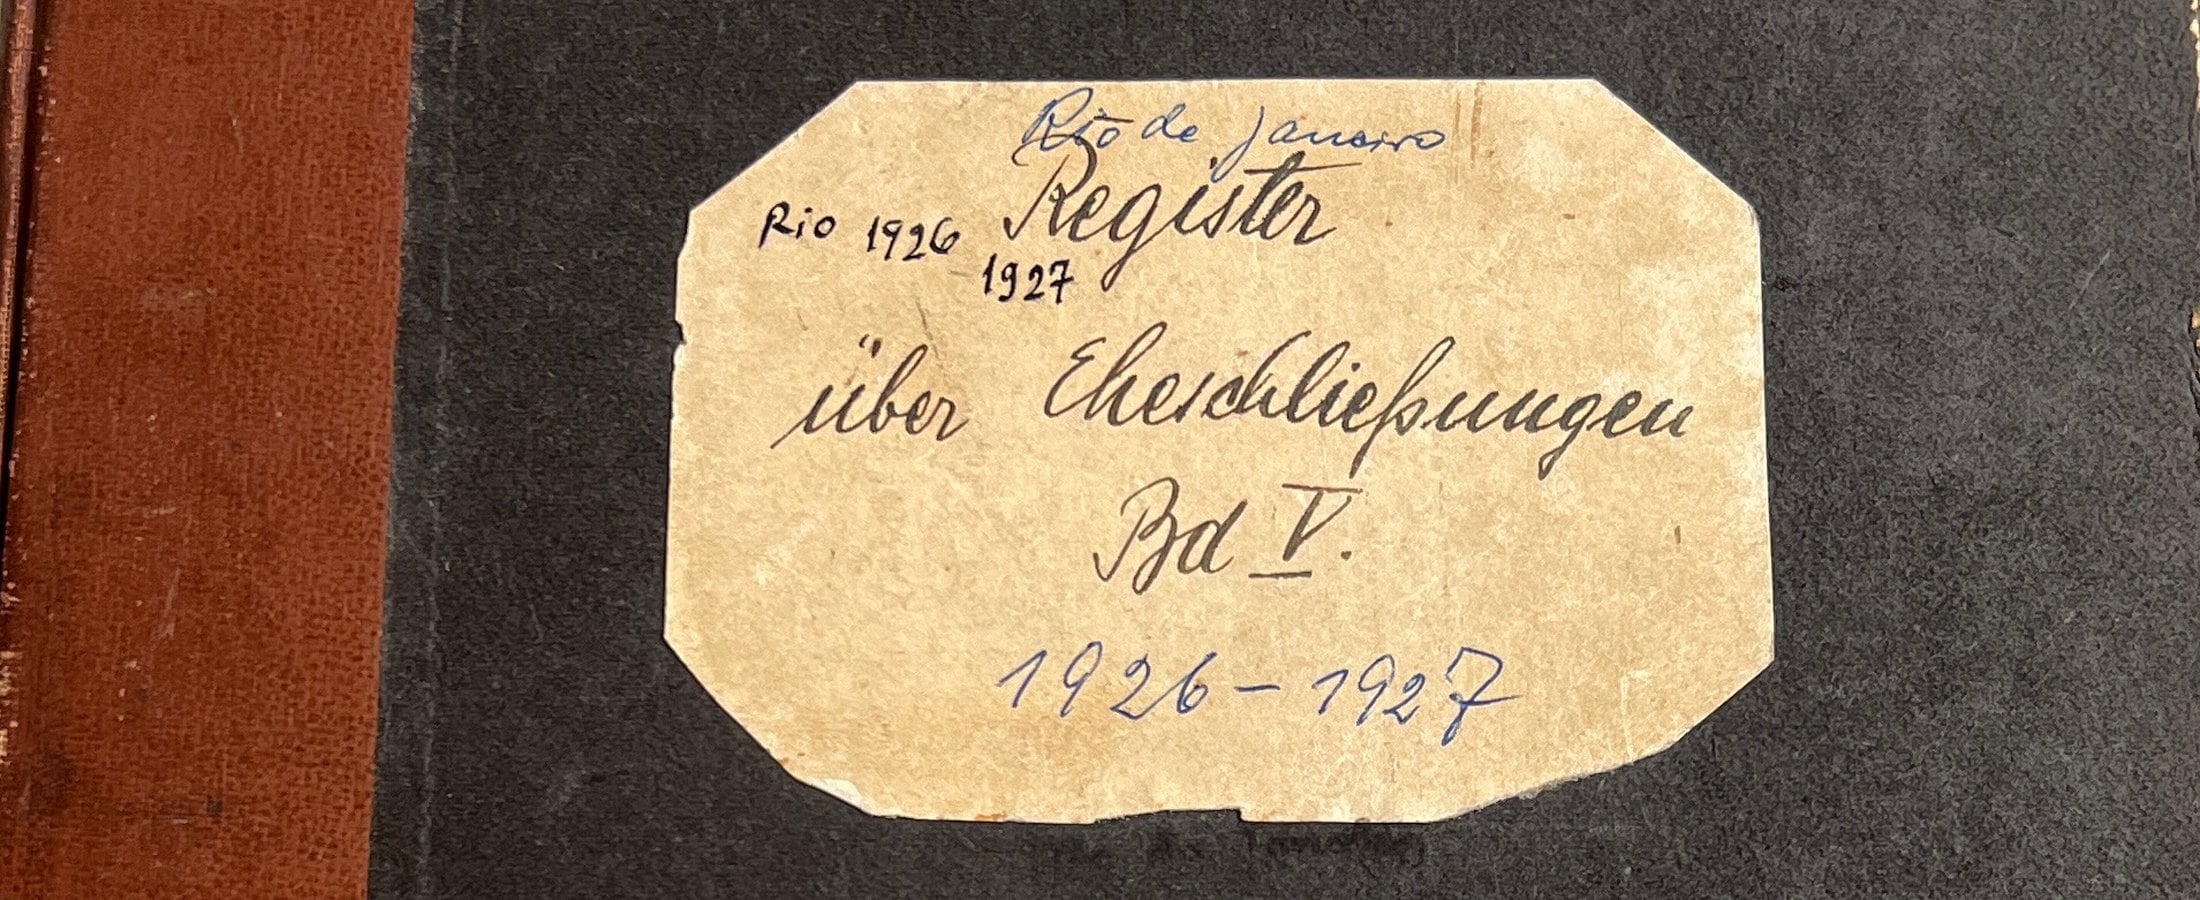 Rio de Janeiro
Register
Rio 1926
1927
über Eheschließungen
Bd V.
1926-1927